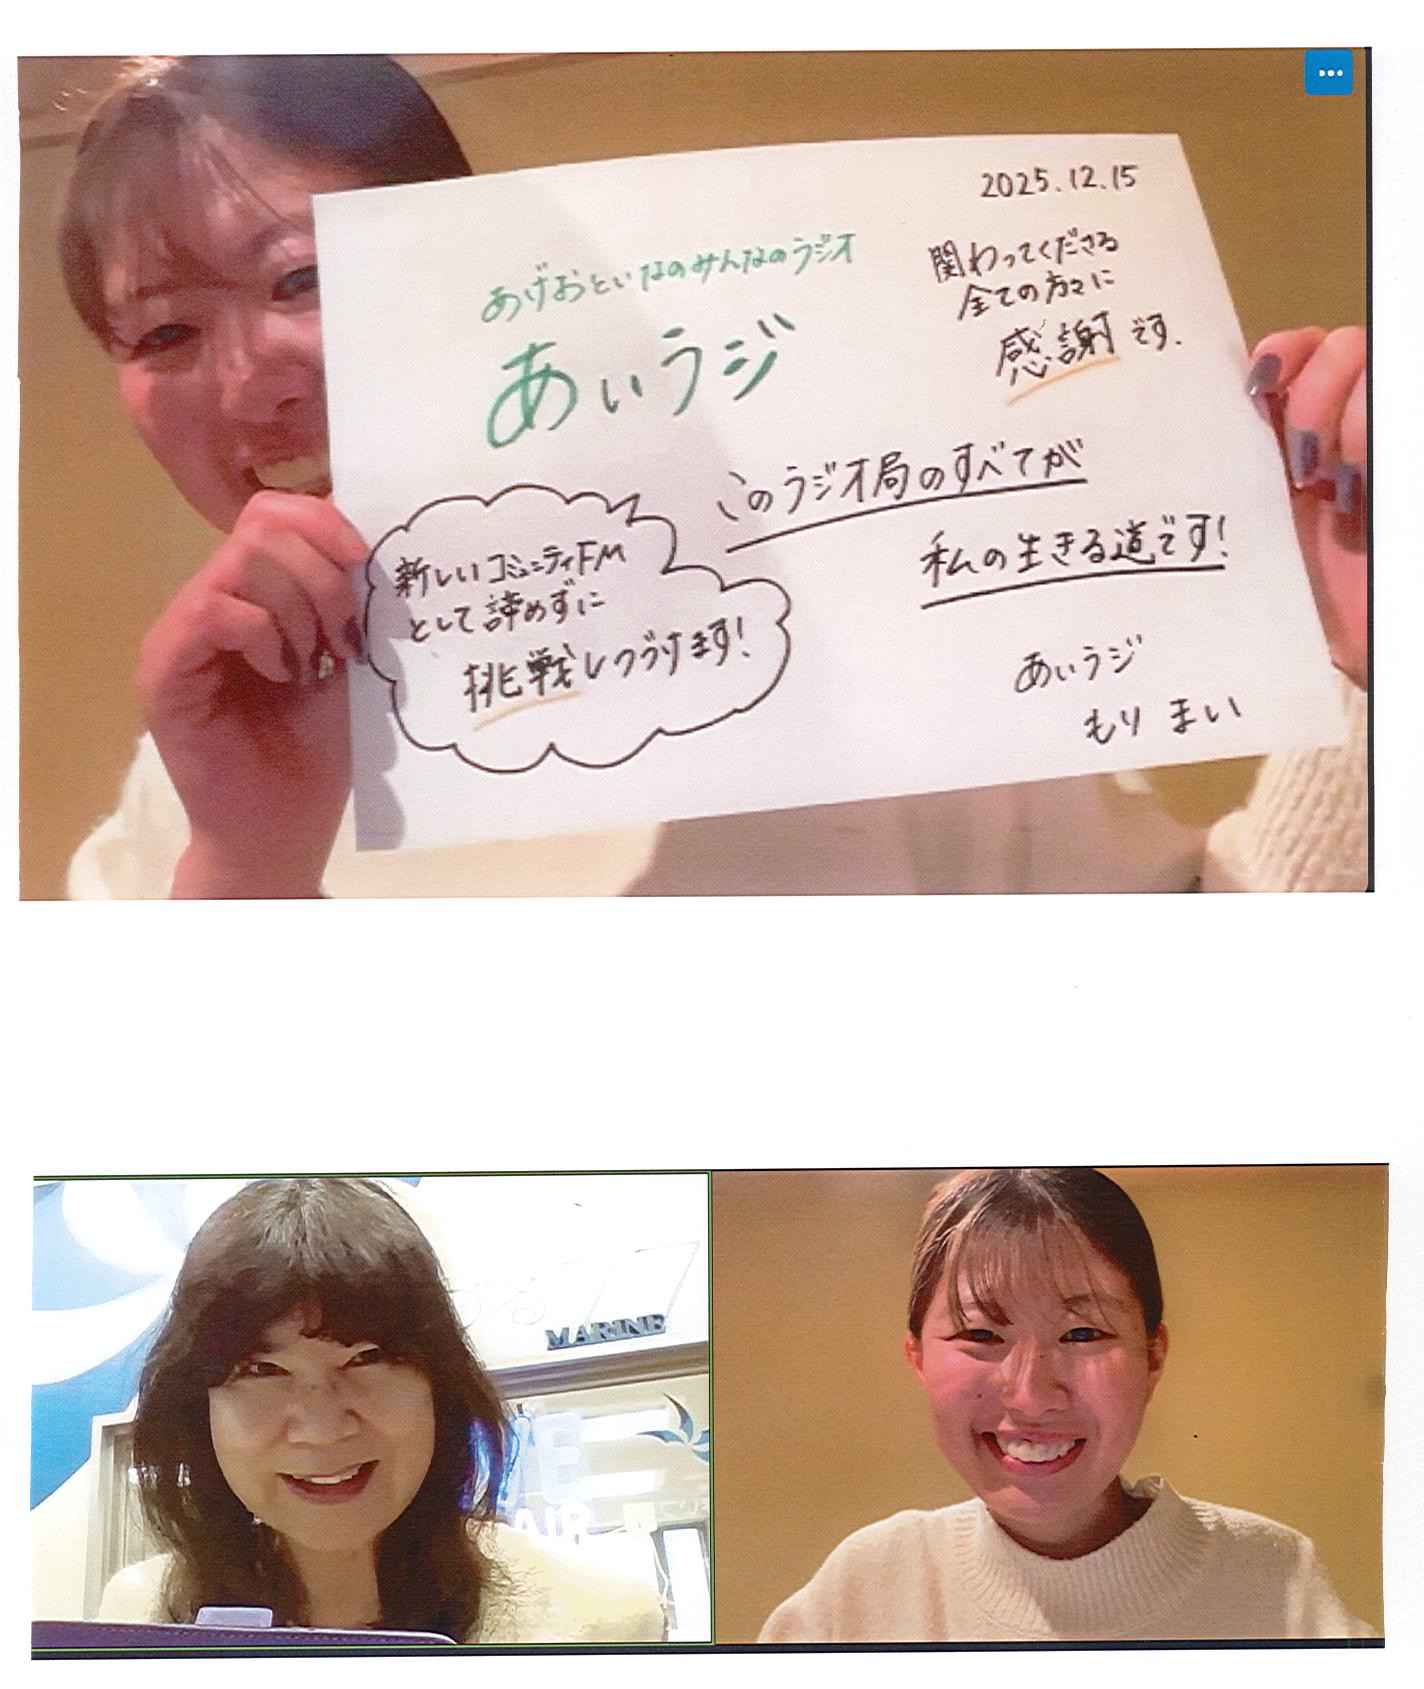 2025.12.15
あげおといなのみんなのラジオ
あぃラジ
関わってくださる
全ての方々に
感謝です.
このラジオ局のすべてが
私の生きる道です!
新しいコミュニティFM
として諦めずに
挑戦しつづけます!
あぃラジ
もり まい
MARINE
AIR